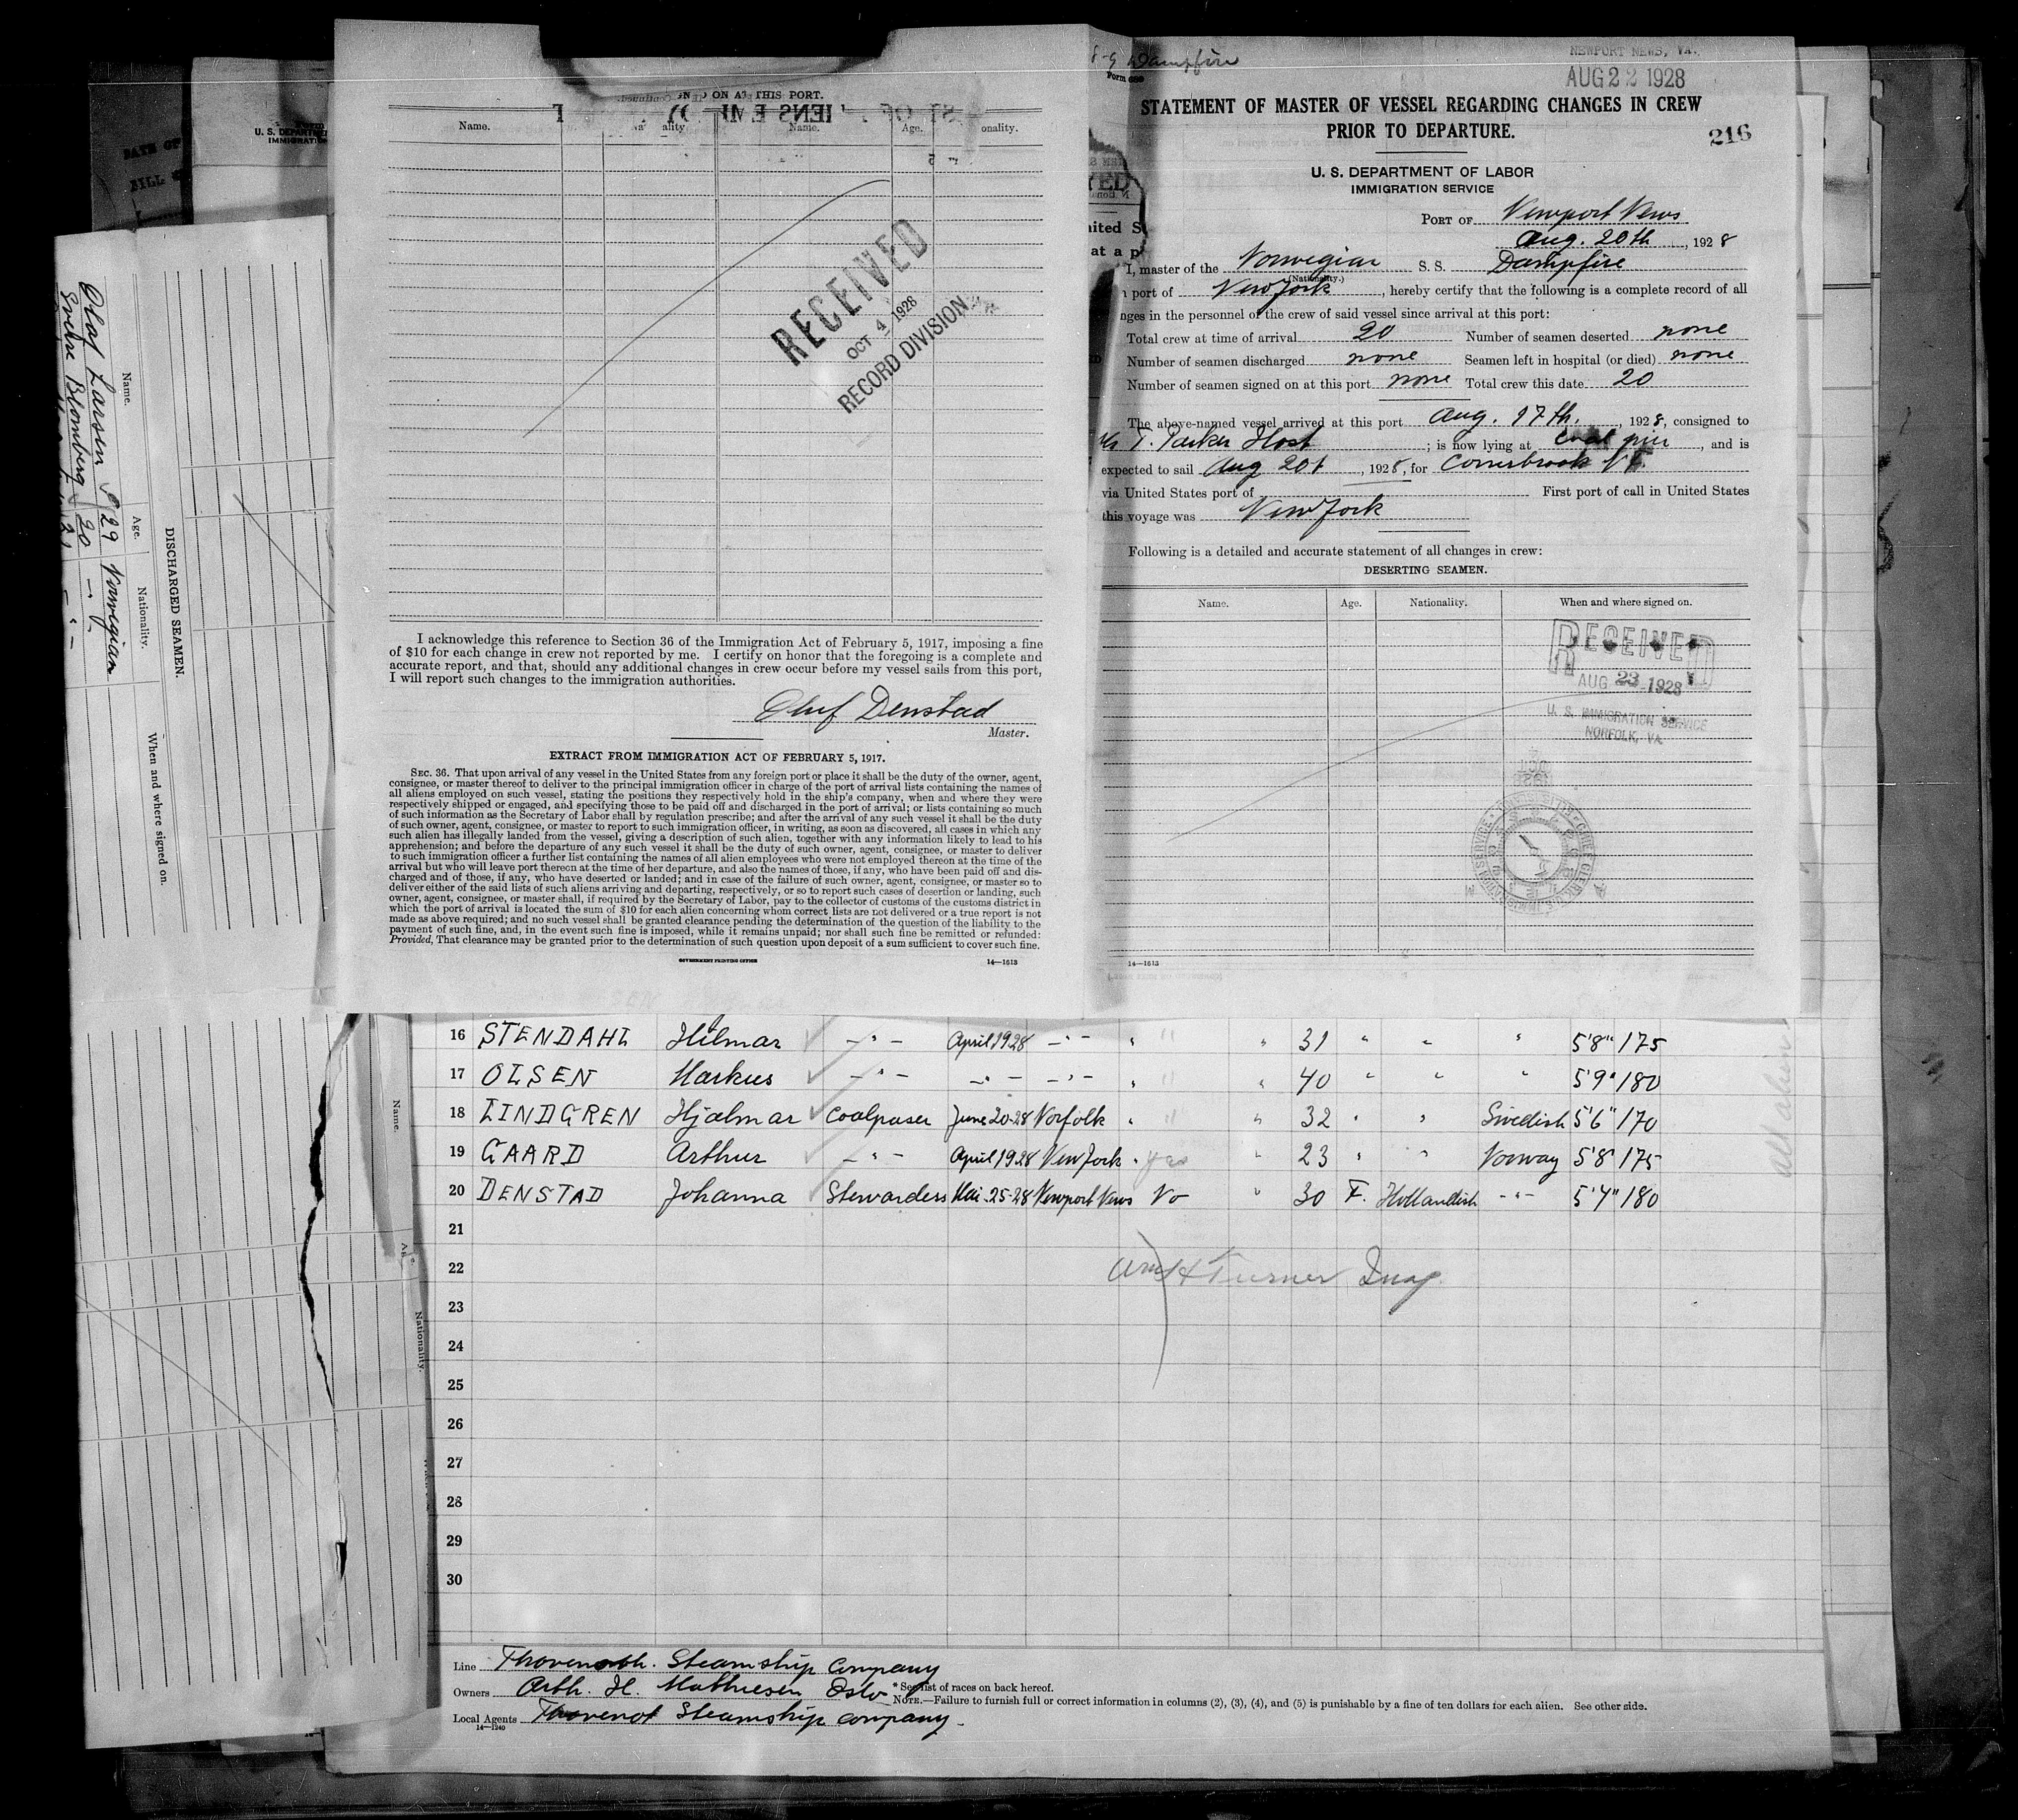 DATE OF
BILL
U. S. DEPARTME
IMMIGRATI
DISCHARGED SEAMEN.
Name. Age. Nationality. When and where signed on.
Olaf Larsen 29 Norwegian
Sverre Blomberg 20 — " —
ON AT THIS PORT.
Name. Name. Age. onality.
RECEIVED
OCT 4 1928
RECORD DIVISION
I acknowledge this reference to Section 36 of the Immigration Act of February 5, 1917, imposing a fine
of $10 for each change in crew not reported by me. I certify on honor that the foregoing is a complete and
accurate report, and that, should any additional changes in crew occur before my vessel sails from this port,
I will report such changes to the immigration authorities.
Oluf Denstad
Master.
EXTRACT FROM IMMIGRATION ACT OF FEBRUARY 5, 1917.
SEC. 36. That upon arrival of any vessel in the United States from any foreign port or place it shall be the duty of the owner, agent,
consignee, or master thereof to deliver to the principal immigration officer in charge of the port of arrival lists containing the names of
all aliens employed on such vessel, stating the positions they respectively hold in the ship's company, when and where they were
respectively shipped or engaged, and specifying those to be paid off and discharged in the port of arrival; or lists containing so much
of such information as the Secretary of Labor shall by regulation prescribe; and after the arrival of any such vessel it shall be the duty
of such owner, agent, consignee, or master to report to such immigration officer, in writing, as soon as discovered, all cases in which any
such alien has illegally landed from the vessel, giving a description of such alien, together with any information likely to lead to his
apprehension; and before the departure of any such vessel it shall be the duty of such owner, agent, consignee, or master to deliver
to such immigration officer a further list containing the names of all alien employees who were not employed thereon at the time of the
arrival but who will leave port thereon at the time of her departure, and also the names of those, if any, who have been paid off and dis-
charged and of those, if any, who have deserted or landed; and in case of the failure of such owner, agent, consignee, or master so to
deliver either of the said lists of such aliens arriving and departing, respectively, or so to report such cases of desertion or landing, such
owner, agent, consignee, or master shall, if required by the Secretary of Labor, pay to the collector of customs of the customs district in
which the port of arrival is located the sum of $10 for each alien concerning whom correct lists are not delivered or a true report is not
made as above required; and no such vessel shall be granted clearance pending the determination of the question of the liability to the
payment of such fine, and, in the event such fine is imposed, while it remains unpaid; nor shall such fine be remitted or refunded:
Provided, That clearance may be granted prior to the determination of such question upon deposit of a sum sufficient to cover such fine.
GOVERNMENT PRINTING OFFICE 14—1613
Dampfire
Form 689
NEWPORT NEWS, VA.
AUG 22 1928
STATEMENT OF MASTER OF VESSEL REGARDING CHANGES IN CREW
PRIOR TO DEPARTURE.
216
U. S. DEPARTMENT OF LABOR
IMMIGRATION SERVICE
PORT OF Newport News
Aug. 20th, 1928
I, master of the Norwegian S. S. Dampfire
(Nationality.)
port of New York, hereby certify that the following is a complete record of all
nges in the personnel of the crew of said vessel since arrival at this port:
Total crew at time of arrival 20 Number of seamen deserted none
Number of seamen discharged none Seamen left in hospital (or died) none
Number of seamen signed on at this port none Total crew this date 20
The above-named vessel arrived at this port Aug. 17th, 1928, consigned to
T. Parker Host; is now lying at coal pier, and is
expected to sail Aug 20t, 1928, for Cornerbrook N F.
via United States port of First port of call in United States
this voyage was New York
Following is a detailed and accurate statement of all changes in crew:
DESERTING SEAMEN.
Name. Age. Nationality. When and where signed on.
RECEIVED
AUG 23 1928
U. S. IMMIGRATION SERVICE
NORFOLK, VA
14—1613
16 STENDAHL Hilmar — " — April 1928 — " — " " 31 " " " 5'8" 175
17 OLSEN Markus — " — — " — — " — " " 40 " " " 5'9" 180
18 LINDGREN Hjalmar Coalpaser June 20-28 Norfolk " " 32 " " Swedish 5'6" 170
19 GAARD Arthur — " — April 1928 New York " yes " 23 " " Norway 5'8 175
20 DENSTAD Johanna Stewardess Mai. 25-28 Newport News No " 30 F. Hollandish — " — 5'4" 180
21
22
Turner Insp.
23
24
25
26
27
28
29
30
all aliens
Name.
Nationality.
Line Thorenoth. Steamship Company
Owners Arth. H. Mathiesen Oslo
* See list of races on back hereof.
NOTE.—Failure to furnish full or correct information in columns (2), (3), (4), and (5) is punishable by a fine of ten dollars for each alien. See other side.
Local Agents Thorenot Steamship Company.
14—1240